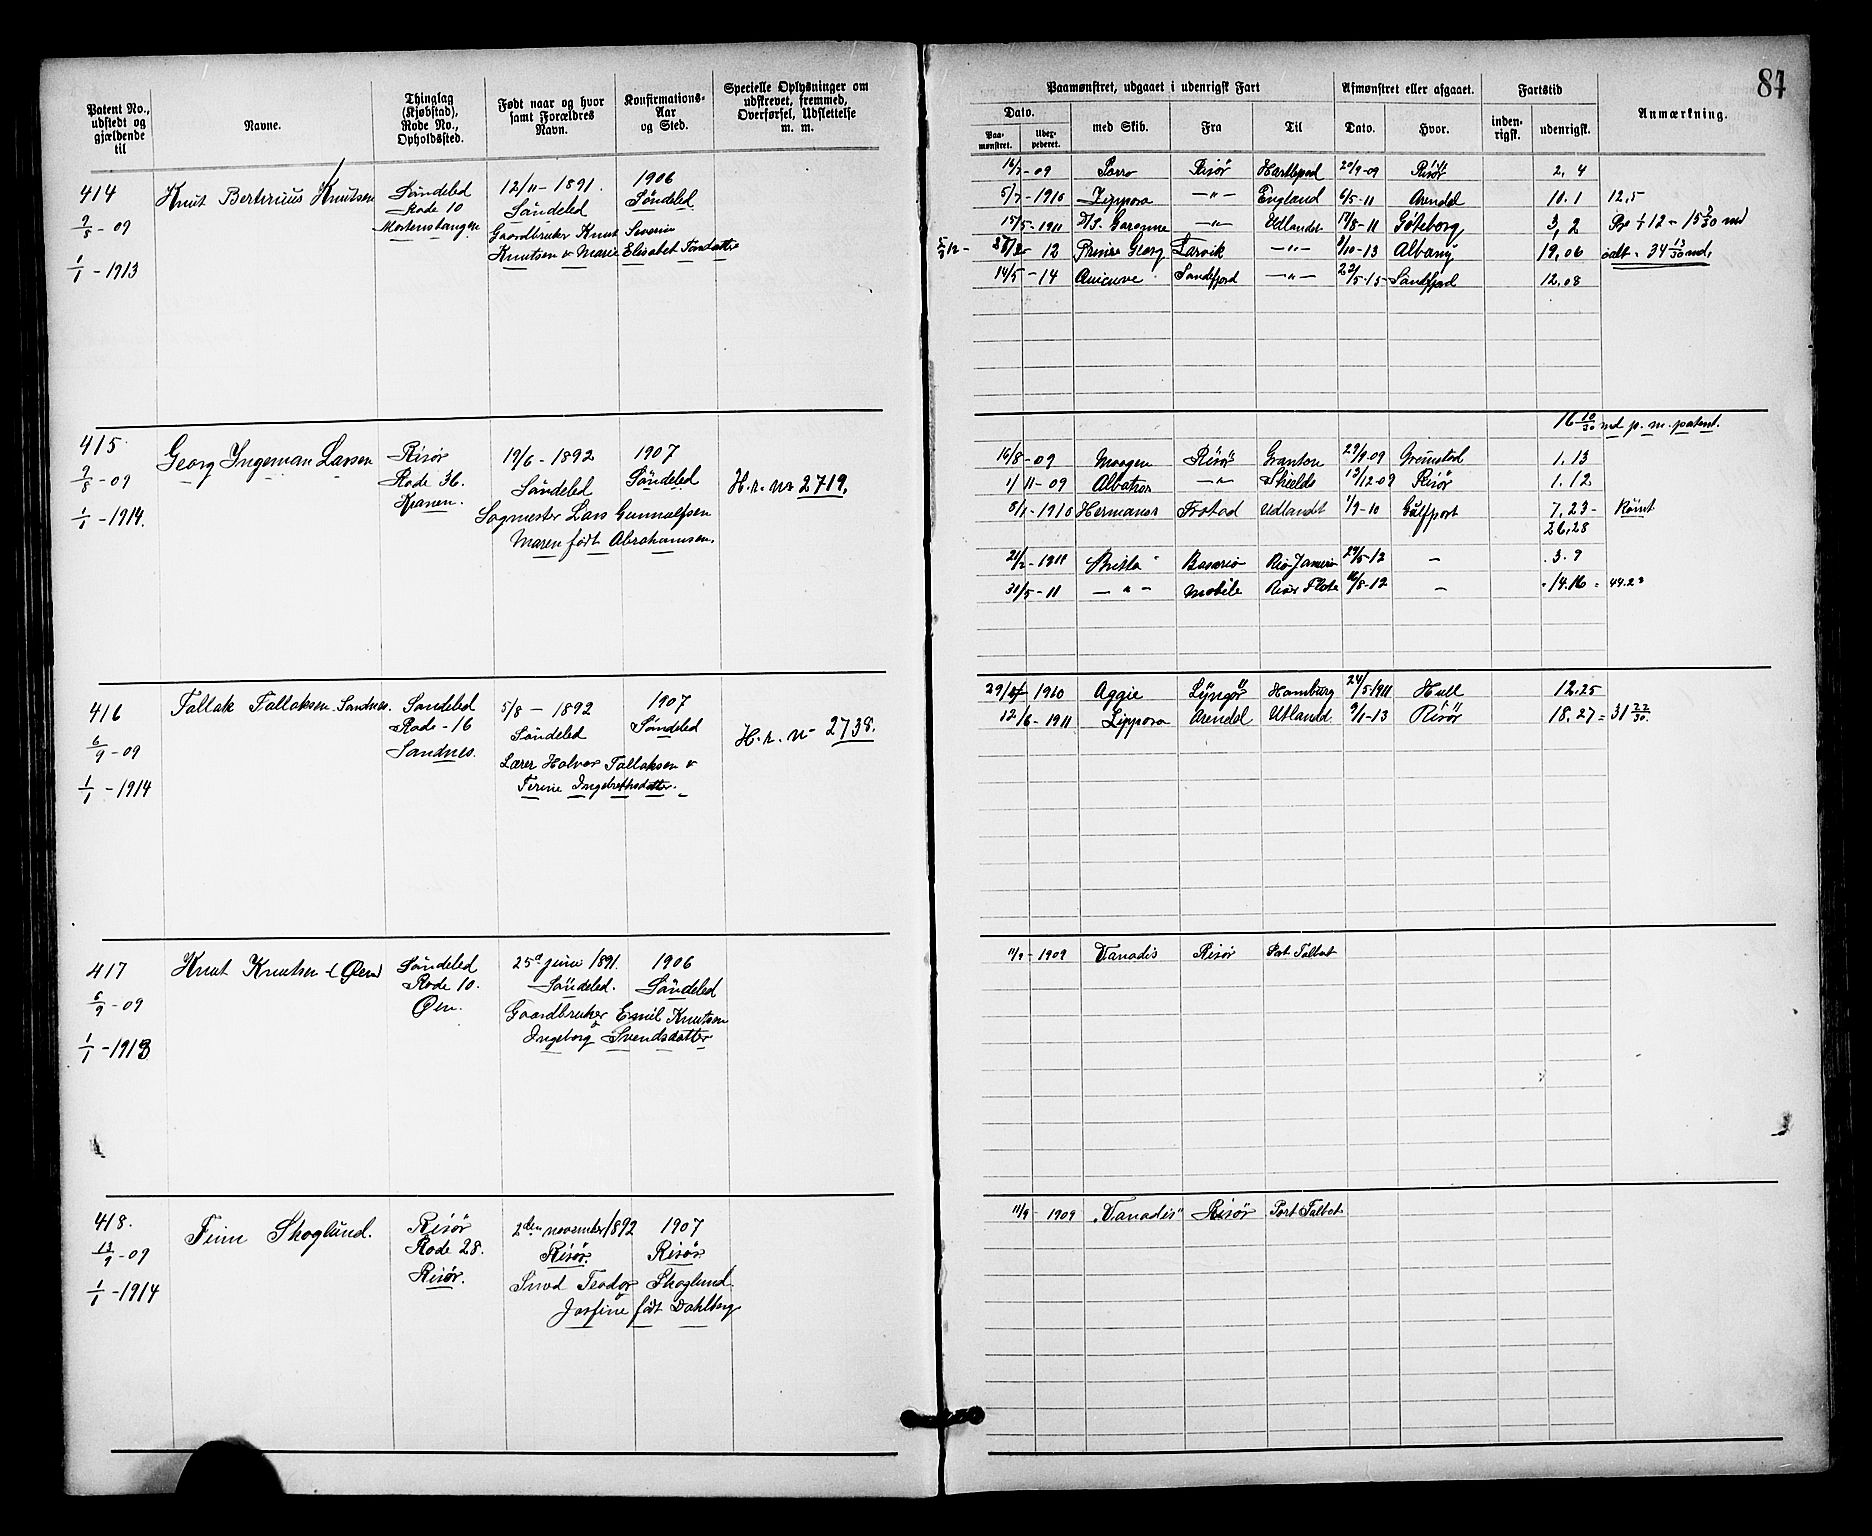 84
Patent No., udstedt og gjældende til
Navne.
Thinglag (Kjøbstad), Rode No., Opholdssted.
Født naar og hvor samt Forældres Navn.
Konfirmations-Aar og Sted.
Specielle Oplysninger om udskrevet, fremmed, Overførsel, Udslettelse m. m.
Paamønstret, udgaaet i udenrigsk Fart
Afmønstret eller afgaaet.
Fartstid
Anmærkning.
Dato.
Paamønstret.
med Skib.
Fra
Til
Dato.
Hvor.
indenrigsk.
udenrigsk.
414
Knut Bertinius Knutsen
Söndeled
Rode 10
12/11-1891.
Söndeled
1906
Söndeled
-09
1/1-1913
Gaardbruker Knut Severin
Knutsen & Marie Elisabet
16/7-09 Risør 20/9-09 Risør 2, 4
5/7-1910 Zippora —"— England 6/5-11 Arendal 10.1 12,5
15/5-1911 D/S. Garonne —"— Udlandet 17/8-11 Göteborg 3, 2
12 Prince Georg Larvik —"— 8/10-13 19,06 ialt 34 13/30 md.
14/5-14 Sandefjord —"— 22/5-15 Sandefjord 12.08
415.
Georg Ingeman Larsen
Risør
Rode 36.
Kranen.
19/6-1892
Söndeled
1907
Söndeled
H.r. nr 2719.
-09
1/1-1914.
Sagmester Lars Gunnulfsen
Maren født Abrahamsen.
16 10/30 md p. m. patent.
16/8-09 Risör Granton 29/9-09 Grimstad 1.13
1/11-09 Albatros —"— Shields 13/12-09 Risør 1.12
8/1-1910 Udlandet 1/9-10 Gulfport 7.23- Rømt
26,28
21/2-1911 Rio Janeiro 29/5-12 — 3.9
31/5-11 —"— Mobile 16/8-12 — 14.16 = 44.23
416
Tallak Tallaksen Sandnes.
Söndeled
Rode-16
Sandnes.
5/8-1892
Söndeled
1907
Söndeled
H.r. nr 2738.
6/9-09
1/1-1914
Lærer Halvor Tallaksen &
Terine Ingebrethsdatter.
1910 Aggie Lyngør Hamburg 24/5-1911 Hull 12.25
12/6-1911 Zippora Arendal Utland. 9/1-13 Risør 18.27 = 31 22/30.
417
Knut Knutsen (Øen)
Söndeled
Rode 10.
Øen.
25de juni 1891.
Söndeled.
1906
Söndeled
6/9-09
1/1-1913
Gaardbruker Emil Knutsen
& Ingeborg Svendsdatter
11/9-1909 Vanadis Risør Port Talbot
418.
Finn Skoglund.
Risør
Rode 28.
Risør.
2den november 1892
Risør.
1907
Risør.
13/9-09
1/1-1914
Teodor Skoglund
& Josfine født Dahlberg
11/9-1909 „Vanadis" Risør Port Talbot